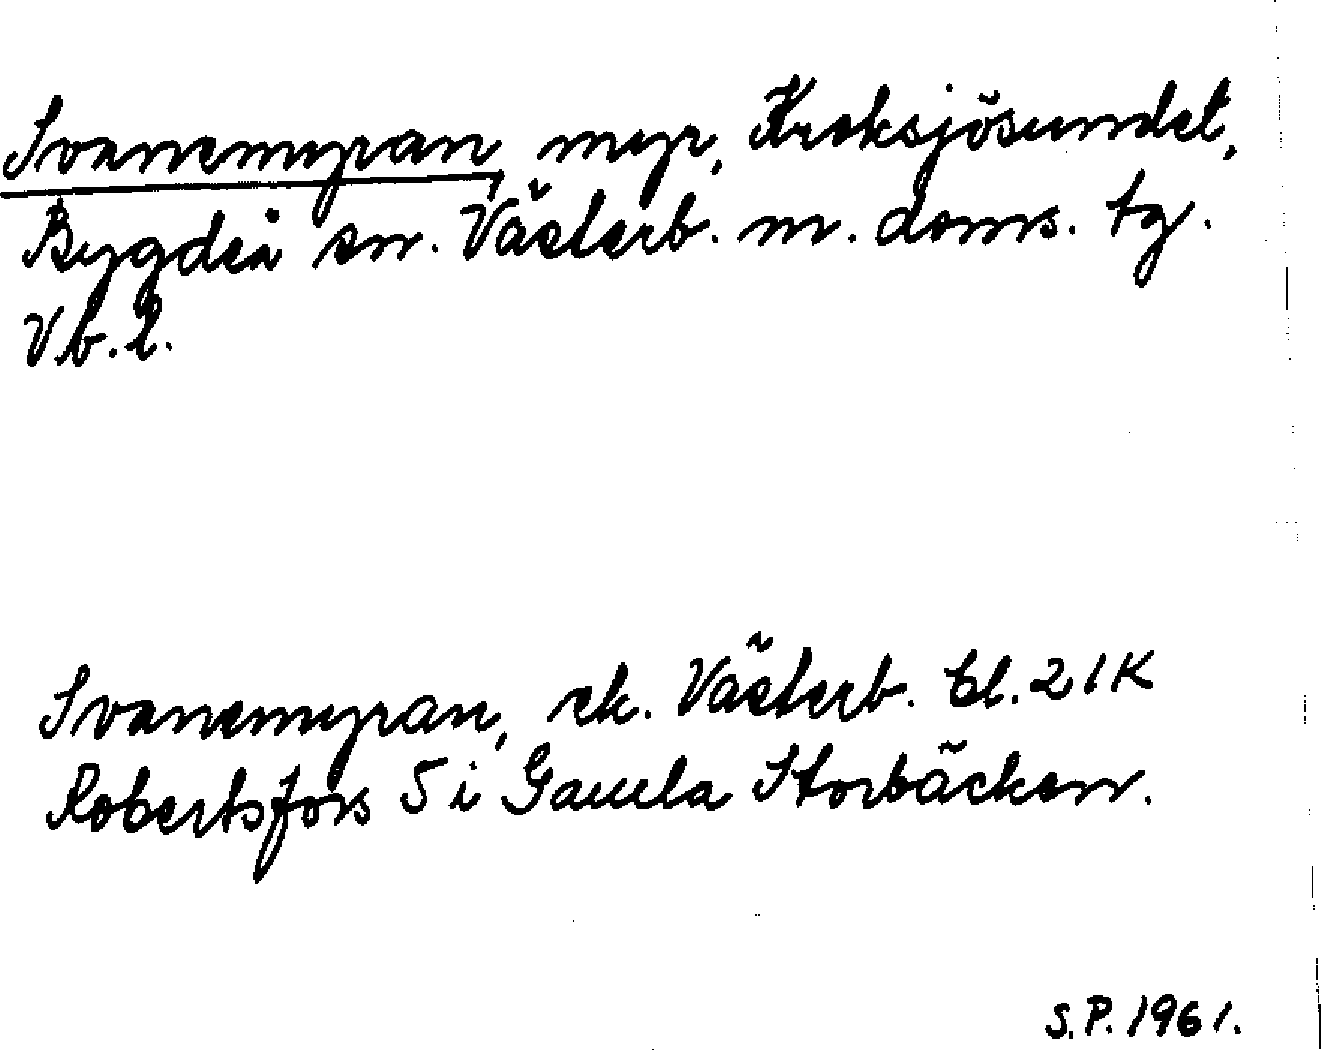 Svanemyran, myr, Kroksjösundet,
Bygdeå sn. Västerb. m. doms. tg.
Vb. l.
Svanemyran, ek. Västerb. bl. 21K
Robertsfors 5 i Gamla Storbäcken.
S.P. 1961.